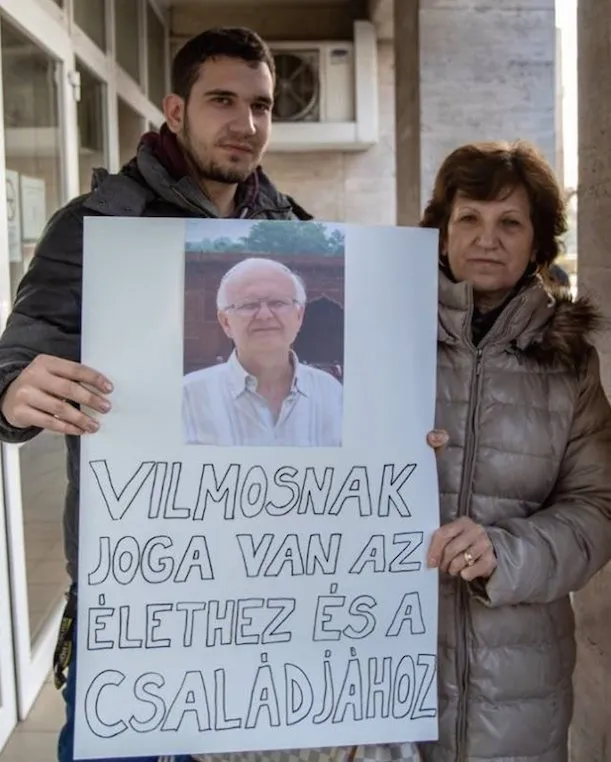 VILMOSNAK
JOGA VAN AZ
ÉLETHEZ ÉS A
CSALÁDJÁHOZ